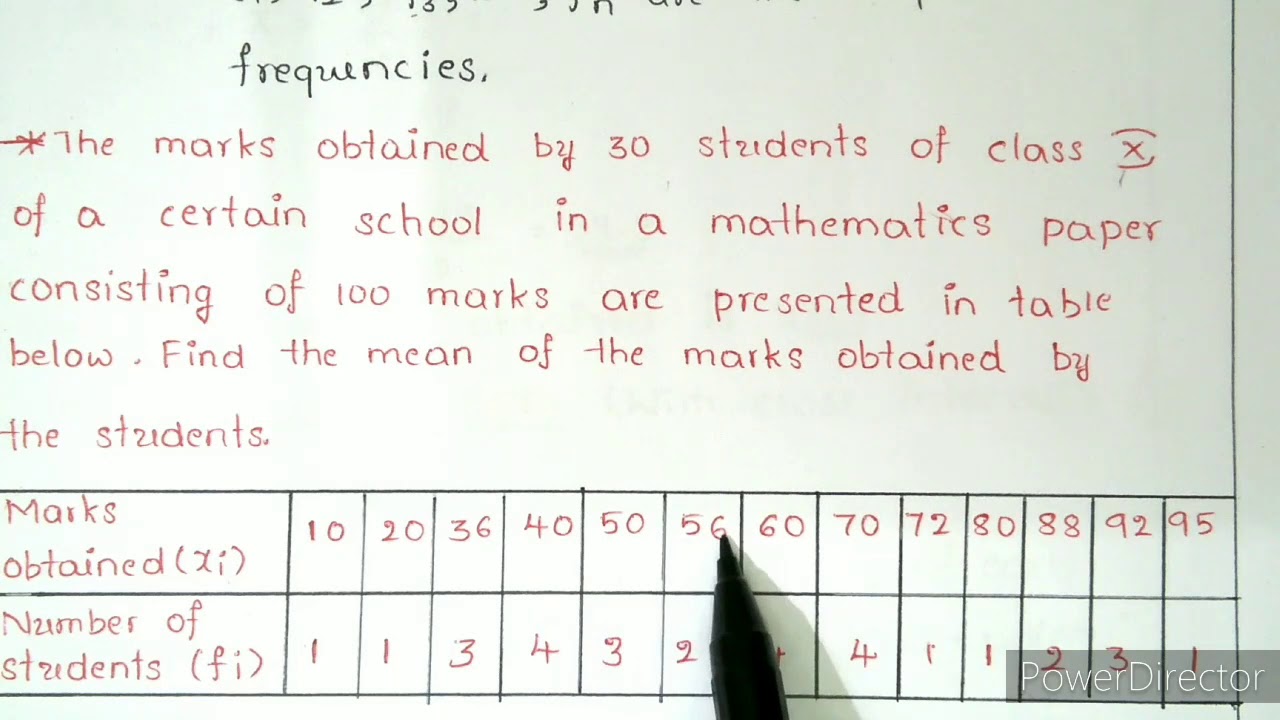 frequencies.
* The marks obtained by 30 students of class X
of a certain school in a mathematics paper
consisting of 100 marks are presented in table
below. Find the mean of the marks obtained by
the students.
Marks obtained (xi) 10 20 36 40 50 56 60 70 72 80 88 92 95
Number of students (fi) 1 1 3 4 3 2 4 1 1 2 3 1
PowerDirector